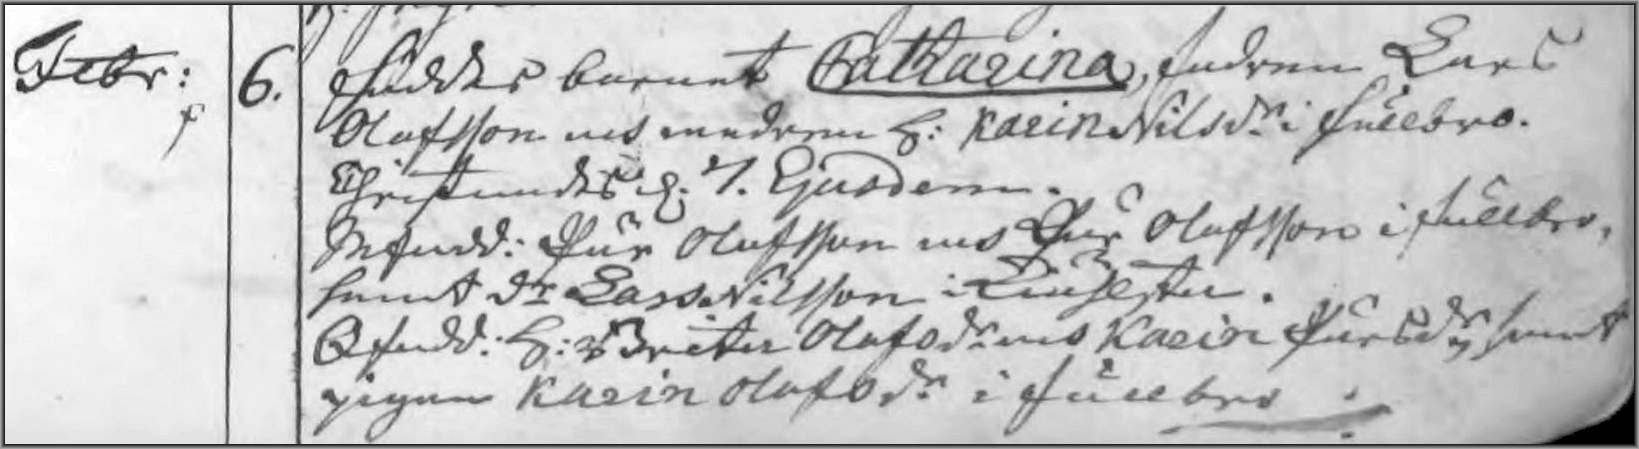 Febr: 6. föddes barnet Catharina, fadren Lars
Olafsson och modren H: Karin Nilsdr i
Christnades d. 7. Ejusdem.
Mfadd: Pär Olafsson och Pär Olafsson i
samt dr Lars Nilsson i
Qfadd: H: Brita Olafsdr och Karin Pärsdr samt
pigan Karin Olafsdr i